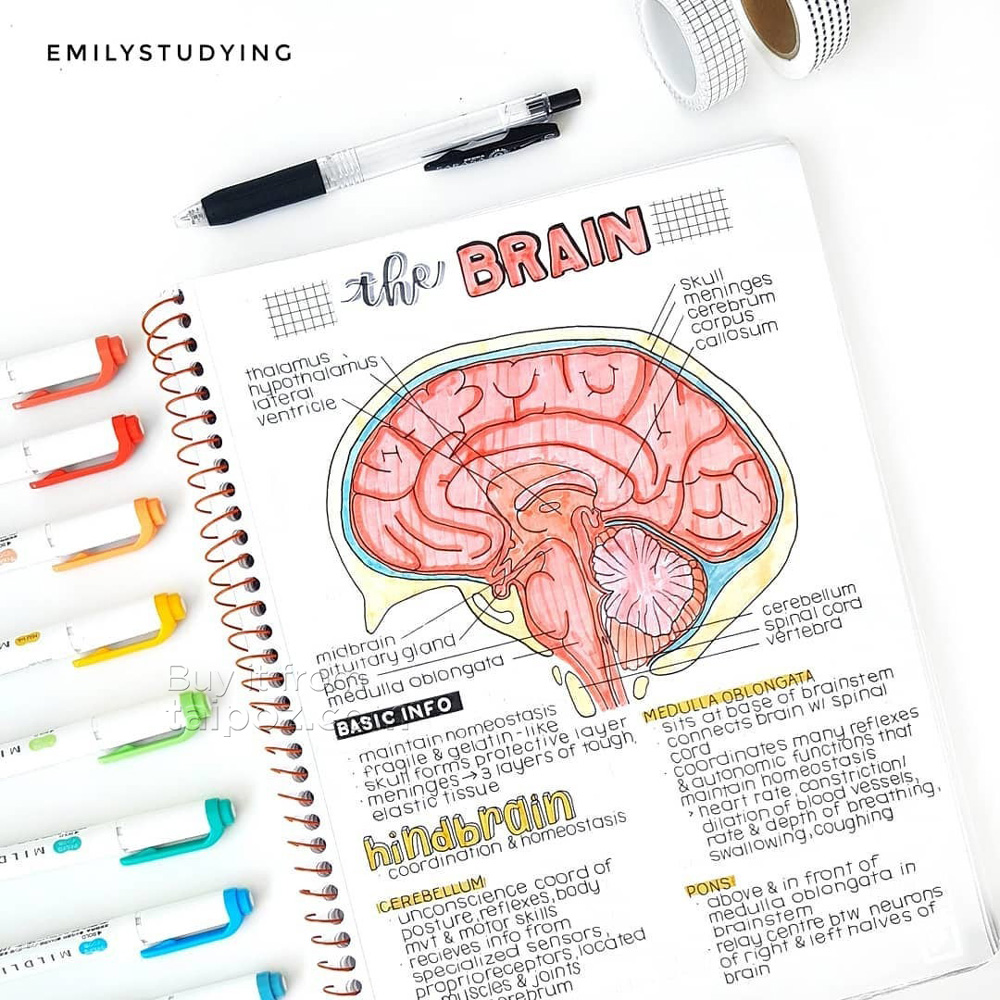 EMILYSTUDYING
the BRAIN
skull
meninges
cerebrum
corpus
callosum
thalamus
hypothalamus
lateral
ventricle
midbrain
pituitary gland
pons
medulla oblongata
cerebellum
spinal cord
vertebra
Buy it from
BASIC INFO
· maintain homeostasis
· fragile & gelatin-like
· skull forms protective layer
· meninges → 3 layers of tough,
elastic tissue
hindbrain
· coordination & homeostasis
CEREBELLUM
· unconscience coord of
posture, reflexes, body
mvt & motor skills
· recieves info from
specialized sensors,
proprioreceptors, located
muscles & joints
cerebrum
MEDULLA OBLONGATA
· sits at base of brainstem
· connects brain w/ spinal
cord
· coordinates many reflexes
& autonomic functions that
maintain homeostasis
> heart rate, constriction/
dilation of blood vessels,
rate & depth of breathing,
swallowing, coughing
PONS
· above & in front of
medulla oblongata in
brainstem
· relay centre btw neurons
of right & left halves of
brain